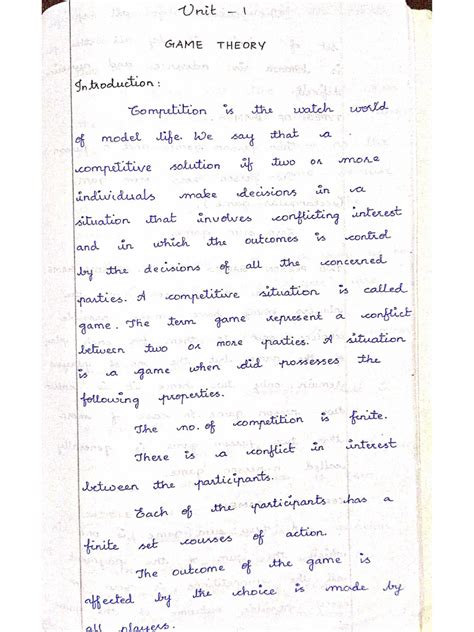 Unit - 1
GAME THEORY
Introduction:
Competition is the watch world
of model life. We say that a
competitive solution if two or more
individuals make decisions in a
situation that involves conflicting interest
and in which the outcomes is control
by the decisions of all the concerned
parties. A competitive situation is called
game. The term game represent a conflict
between two or more parties. A situation
is a game when did possesses the
following properties.
The no. of competition is finite.
There is a conflict in interest
between the participants.
Each of the participants has a
finite set courses of action.
The outcome of the game is
affected by the choice is made by
all players.